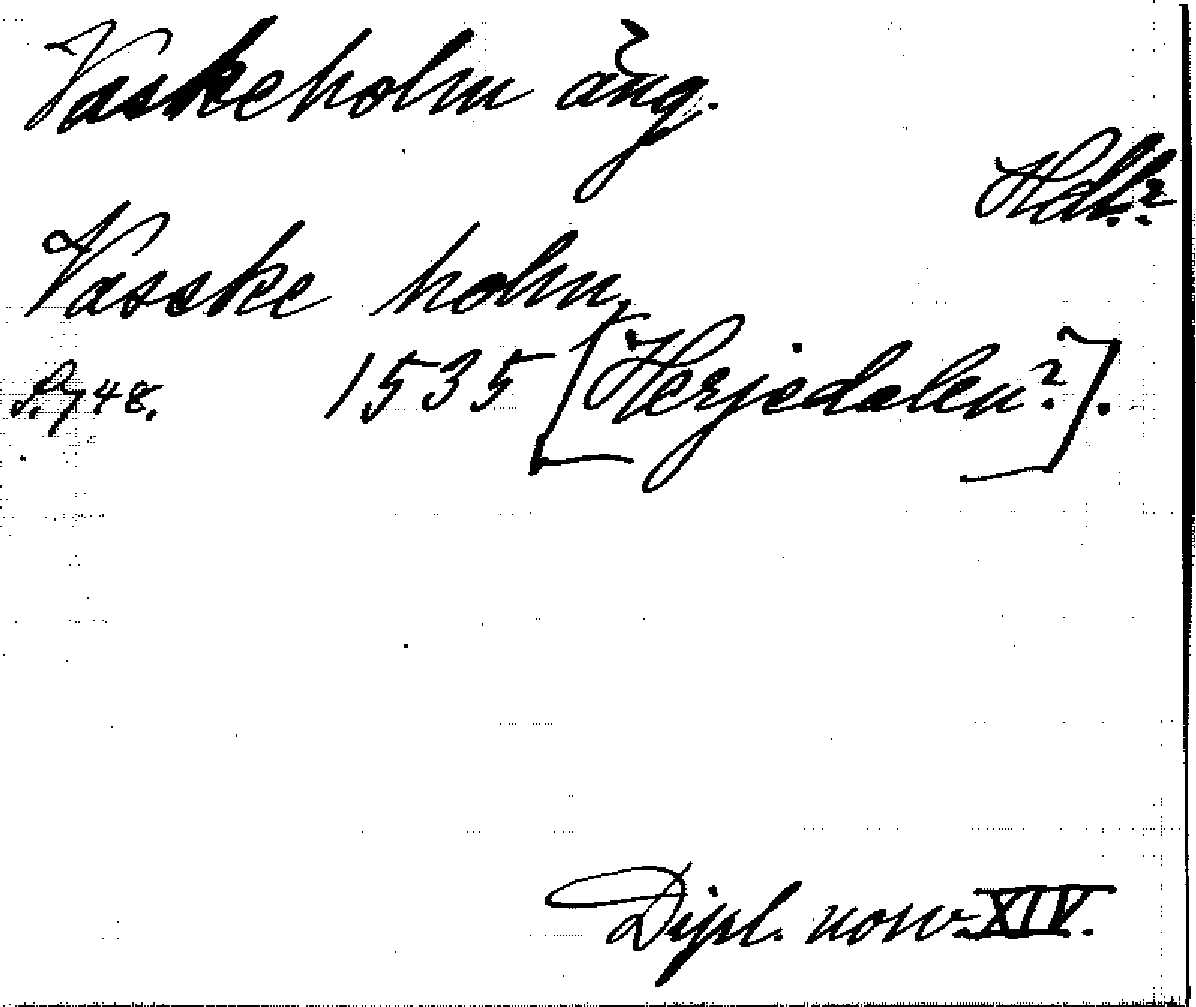 Vaskeholm äng.
Hdl.?
Vasske holm,
S. 748. 1535 [Herjedalen?].
Dipl. norv. XIV.